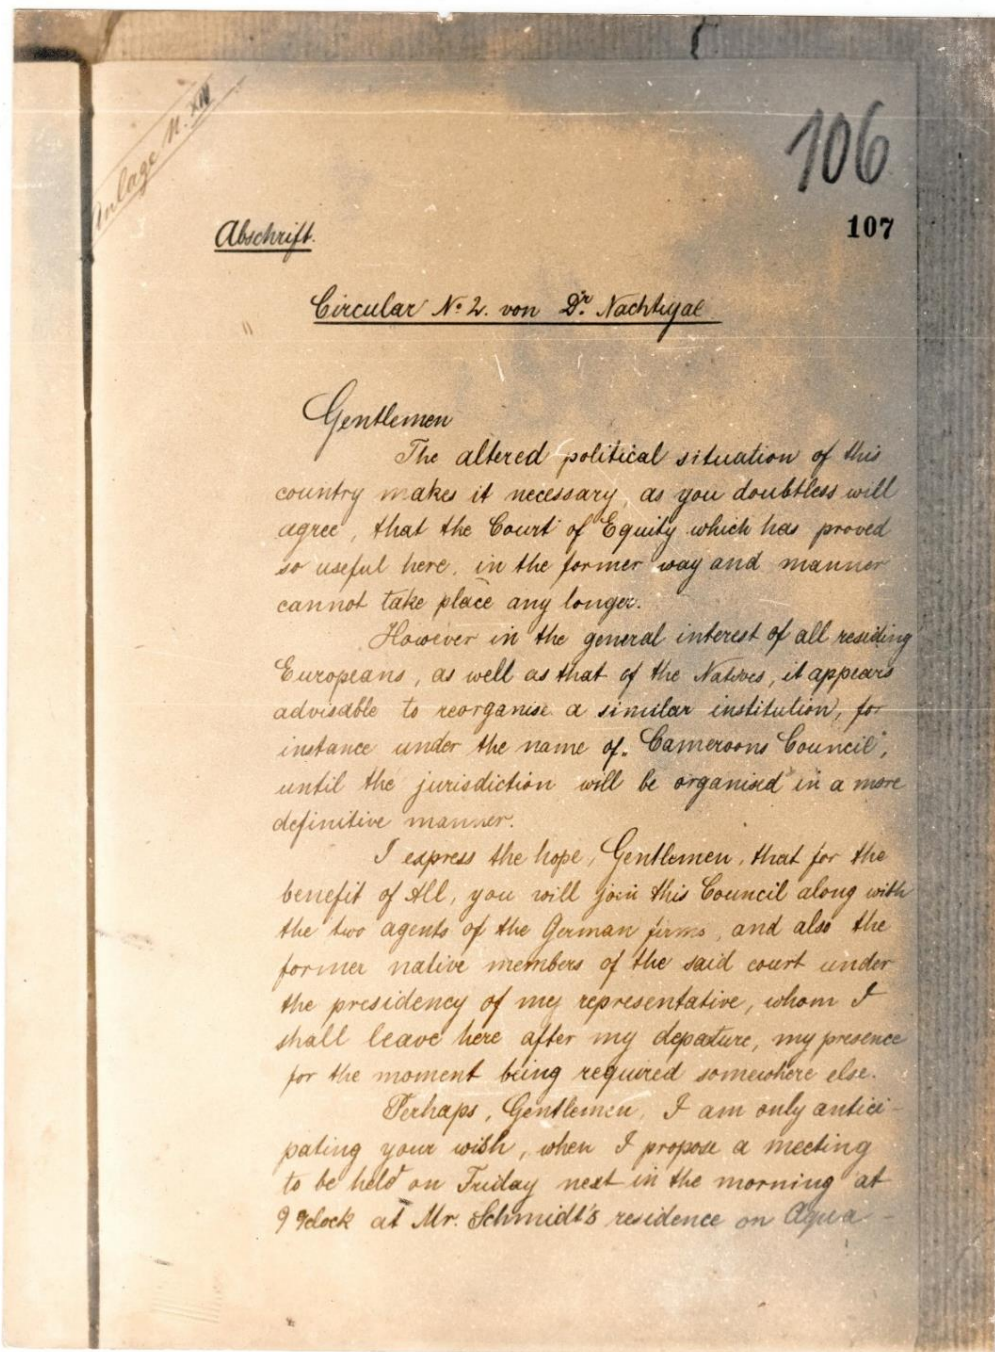 Anlage N. XIV
106
107
Abschrift.
Circular No 2. von Dr. Nachtigal
Gentlemen
The altered political situation of this
country makes it necessary, as you doubtless will
agree, that the Court of Equity which has proved
so useful here, in the former way and manner
cannot take place any longer.
However in the general interest of all residing
Europeans, as well as that of the Natives, it appears
advisable to reorganise a similar institution, for
instance under the name of „Cameroons Council",
until the jurisdiction will be organised in a more
definitive manner.
I express the hope, Gentlemen, that for the
benefit of All, you will join this Council along with
the two agents of the German firms, and also the
former native members of the said court under
the presidency of my representative, whom I
shall leave here after my departure, my presence
for the moment being required somewhere else.
Perhaps, Gentlemen, I am only antici-
pating your wish, when I propose a meeting
to be held on Friday next in the morning at
9 o'clock at Mr. Schmidt's residence on Aqua-